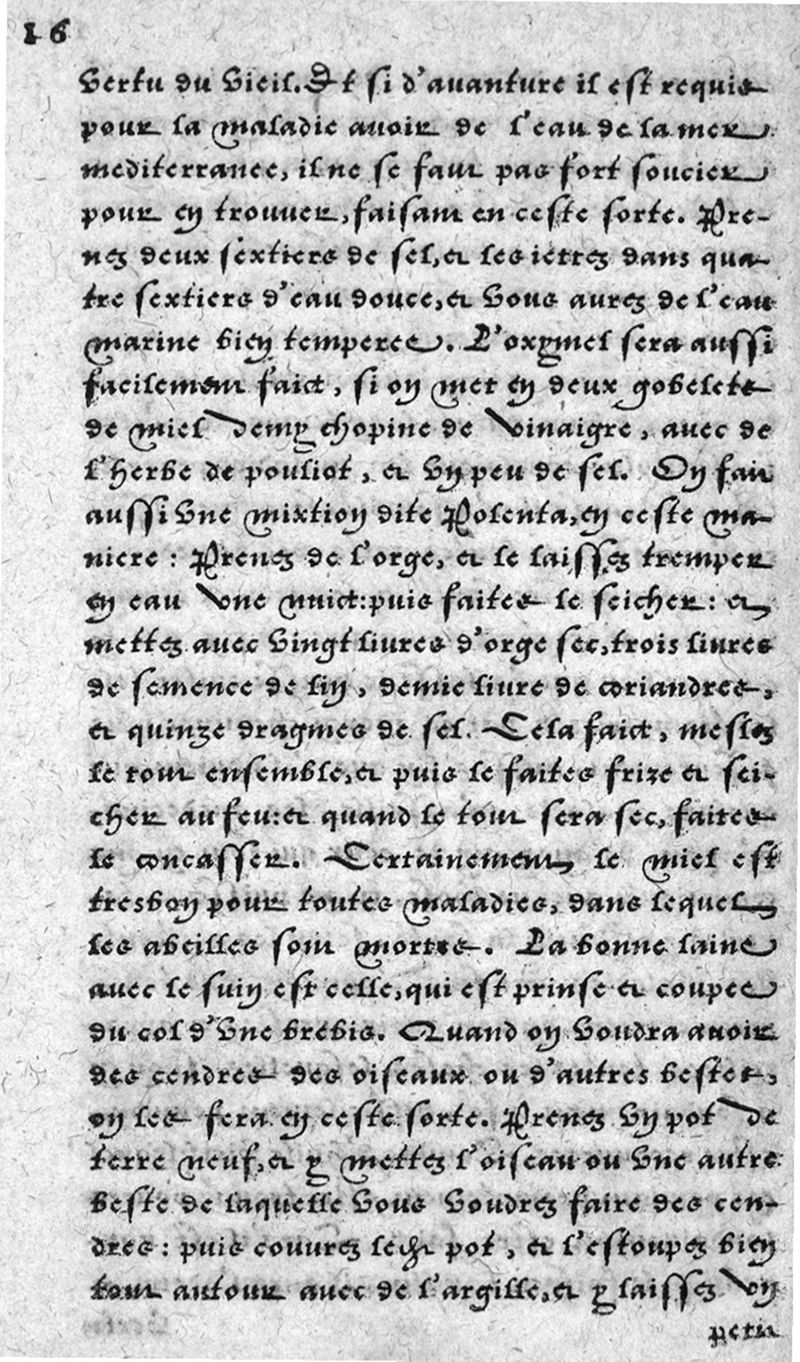 16
vertu du vieil. Et si d'auanture il est requis
pour la maladie auoir de l'eau de la mer
mediterranee, il ne se faut pas fort soucier
pour en trouuer, faisant en ceste sorte. Pre-
nez deux sextiers de sel, et les iettez dans qua-
tre sextiers d'eau douce, et vous aurez de l'eau
marine bien temperee. L'oxymel sera aussi
facilement faict, si on met en deux gobelets
de miel demy chopine de vinaigre, auec de
l'herbe de pouliot, et vn peu de sel. On fait
aussi vne mixtion dite Polenta, en ceste ma-
niere : Prenez de l'orge, et le laissez tremper
en eau vne nuict: puis faites le seicher: et
mettez auec vingt liures d'orge sec, trois liures
de semence de lin, demie liure de coriandres,
et quinze dragmes de sel. Cela faict, meslez
le tout ensemble, et puis le faites frize et sei-
cher au feu: et quand le tout sera sec, faites
le concasser. Certainement le miel est
tresbon pour toutes maladies, dans lequel
les abeilles sont mortes. La bonne laine
auec le suin est celle, qui est prinse et coupee
du col d'vne brebis. Quand on voudra auoir
des cendres des oiseaux ou d'autres bestes,
on les fera en ceste sorte. Prenez vn pot de
terre neuf, et y mettez l'oiseau ou vne autre
beste de laquelle vous voudrez faire des cen-
dres: puis couurez le pot, et l'estoupez bien
tout autour auec de l'argille, et y laissez vn
petit